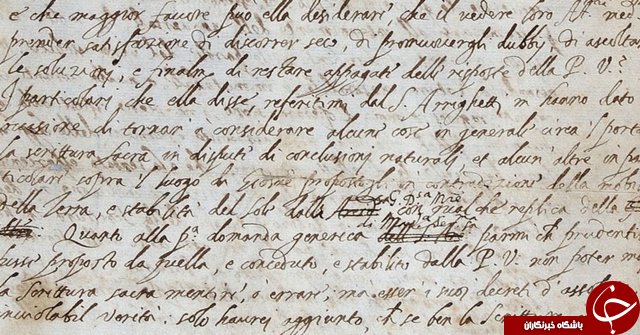 e che maggior favore può ella desiderare, che il vedere loro Alt.e med
prender satisfazione di discorrer seco, di promuovergli dubbij, di ascoltar
le soluzioni, e finalm.te di restare appagati delle risposte della P. V.a
I particolari che ella disse, referitimi dal S. Arrighetti, m'hanno dato
occasione di tornar a considerare alcune cose in generale circa 'l portar
la scrittura sacra in dispute di conclusioni naturali, et alcun'altre in par
ticolare sopra 'l luogo di Giosuè propostogli in contradizione della mobi
della Terra, e stabilità del Sole dalla G. D.a Madre con qualche replica della
di M.ma Ser.ma
Quanto alla p.a domanda generica parmi ch prudentiss
fusse proposto da quella, e conceduto, e stabilito dalla P. V. non poter mai
la Scrittura sacra mentire, o errare, ma esser i suoi decreti d'assoluta
inviolabil verità: solo haurei aggiunto, ch se ben la Scrittura
باشگاه خبرنگاران